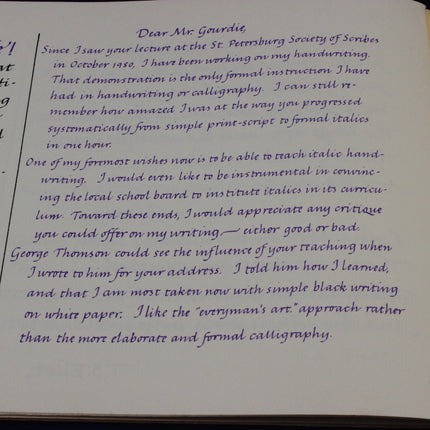 Dear Mr. Gourdie,
Since I saw your lecture at the St. Petersburg Society of Scribes
in October 1980, I have been working on my handwriting.
That demonstration is the only formal instruction I have
had in handwriting or calligraphy. I can still re-
member how amazed I was at the way you progressed
systematically from simple print-script to formal italics
in one hour.
One of my foremost wishes now is to be able to teach italic hand-
writing. I would even like to be instrumental in convinc-
ing the local school board to institute italics in its curricu-
lum. Toward these ends, I would appreciate any critique
you could offer on my writing — either good or bad.
George Thomson could see the influence of your teaching when
I wrote to him for your address. I told him how I learned,
and that I am most taken now with simple black writing
on white paper. I like the "everyman's art" approach rather
than the more elaborate and formal calligraphy.